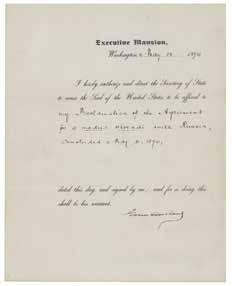 Executive Mansion,
Washington, May 12, 1894
I hereby authorize and direct the Secretary of State
to cause the Seal of the United States to be affixed to
my Proclamation of the Agreement
for a modus vivendi with Russia,
concluded May 4, 1894,
dated this day, and signed by me; and for so doing this
shall be his warrant.
Grover Cleveland